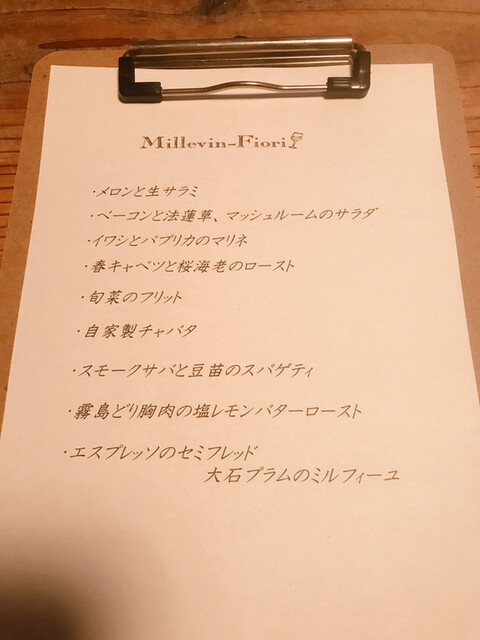 Millevin-Fiori
・メロンと生サラミ
・ベーコンと法蓮草、マッシュルームのサラダ
・イワシとパプリカのマリネ
・春キャベツと桜海老のロースト
・旬菜のフリット
・自家製チャバタ
・スモークサバと豆苗のスパゲティ
・霧島どり胸肉の塩レモンバターロースト
・エスプレッソのセミフレッド
大石プラムのミルフィーユ